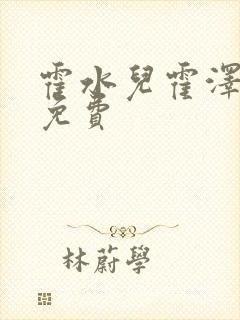 霍水兒霍澤
免費
林蔚學